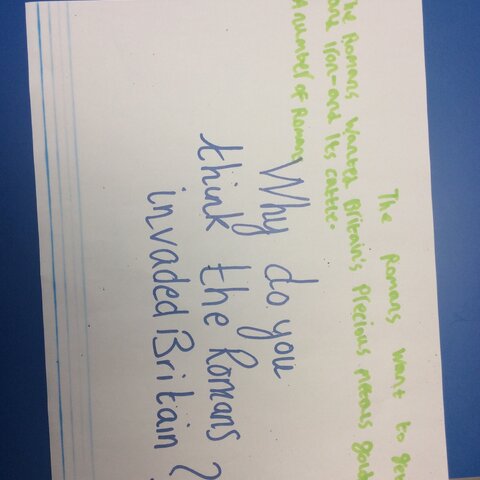 The Romans want to get
The Romans wanted Britain's Precious metals gold
and iron-and its cattle.
A number of Romans
Why do you
think the Romans
invaded Britain ?